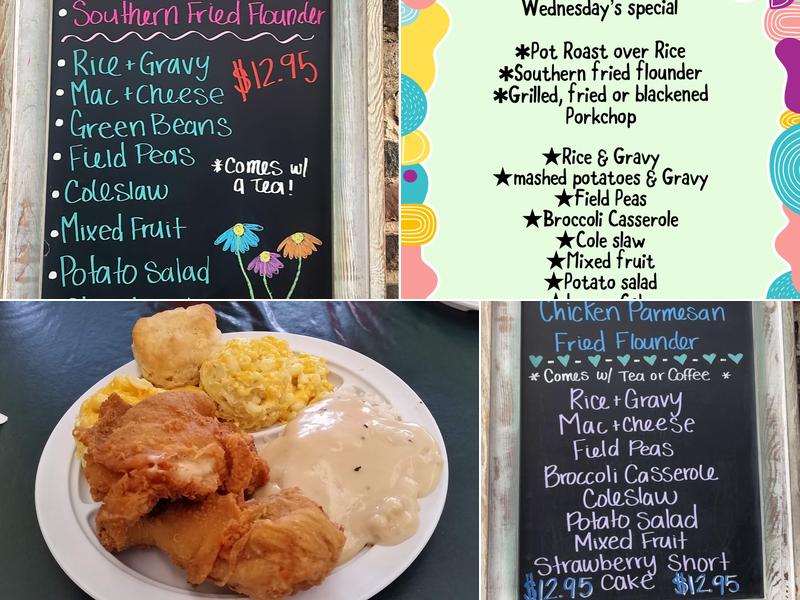 • Southern Fried Flounder
• Rice + Gravy
$12.95
• Mac + Cheese
• Green Beans
• Field Peas
*Comes w/
a Tea!
• Coleslaw
• Mixed Fruit
• Potato Salad
Wednesday's special
*Pot Roast over Rice
*Southern fried flounder
*Grilled, fried or blackened
Porkchop
★Rice & Gravy
★mashed potatoes & Gravy
★Field Peas
★Broccoli Casserole
★Cole slaw
★Mixed fruit
★Potato salad
Chicken Parmesan
Fried Flounder
* Comes w/ Tea or Coffee *
Rice + Gravy
Mac + cheese
Field Peas
Broccoli Casserole
Coleslaw
Potato Salad
Mixed Fruit
Strawberry Short
$12.95 Cake $12.95